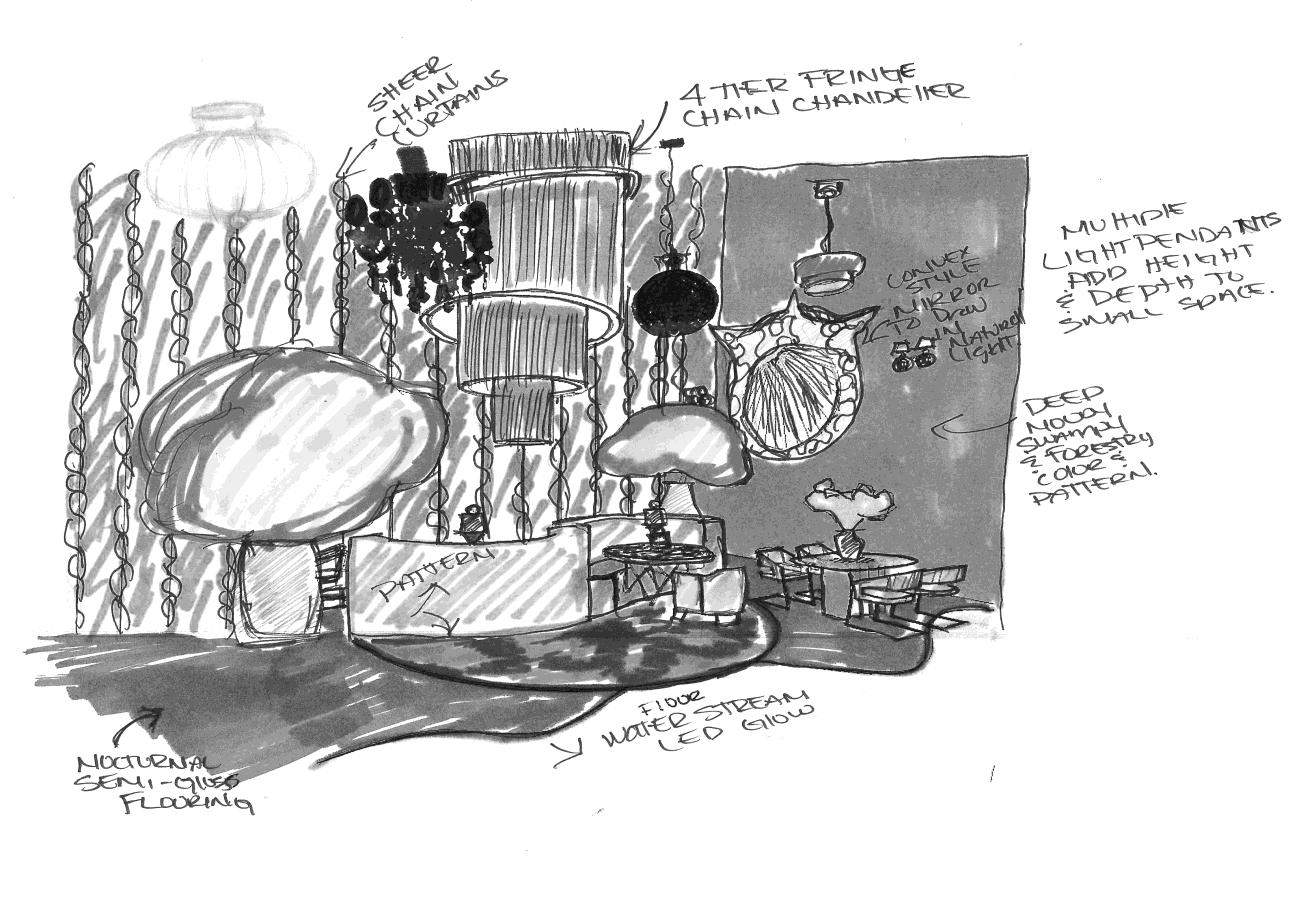 SHEER
CHAIN
CURTAINS
4 TIER FRINGE
CHAIN CHANDELIER
MULTIPLE
LIGHT PENDANTS
ADD HEIGHT
& DEPTH TO
SMALL SPACE.
CONVEX
STYLE
MIRROR
TO DRAW
IN
NATURAL
LIGHT.
DEEP
MOODY
SWAMPY
& FORESTRY
COLOR &
PATTERN.
PATTERN
FLOUR
WATER STREAM
LED GLOW
NOCTURNAL
SEMI-GLOSS
FLOORING